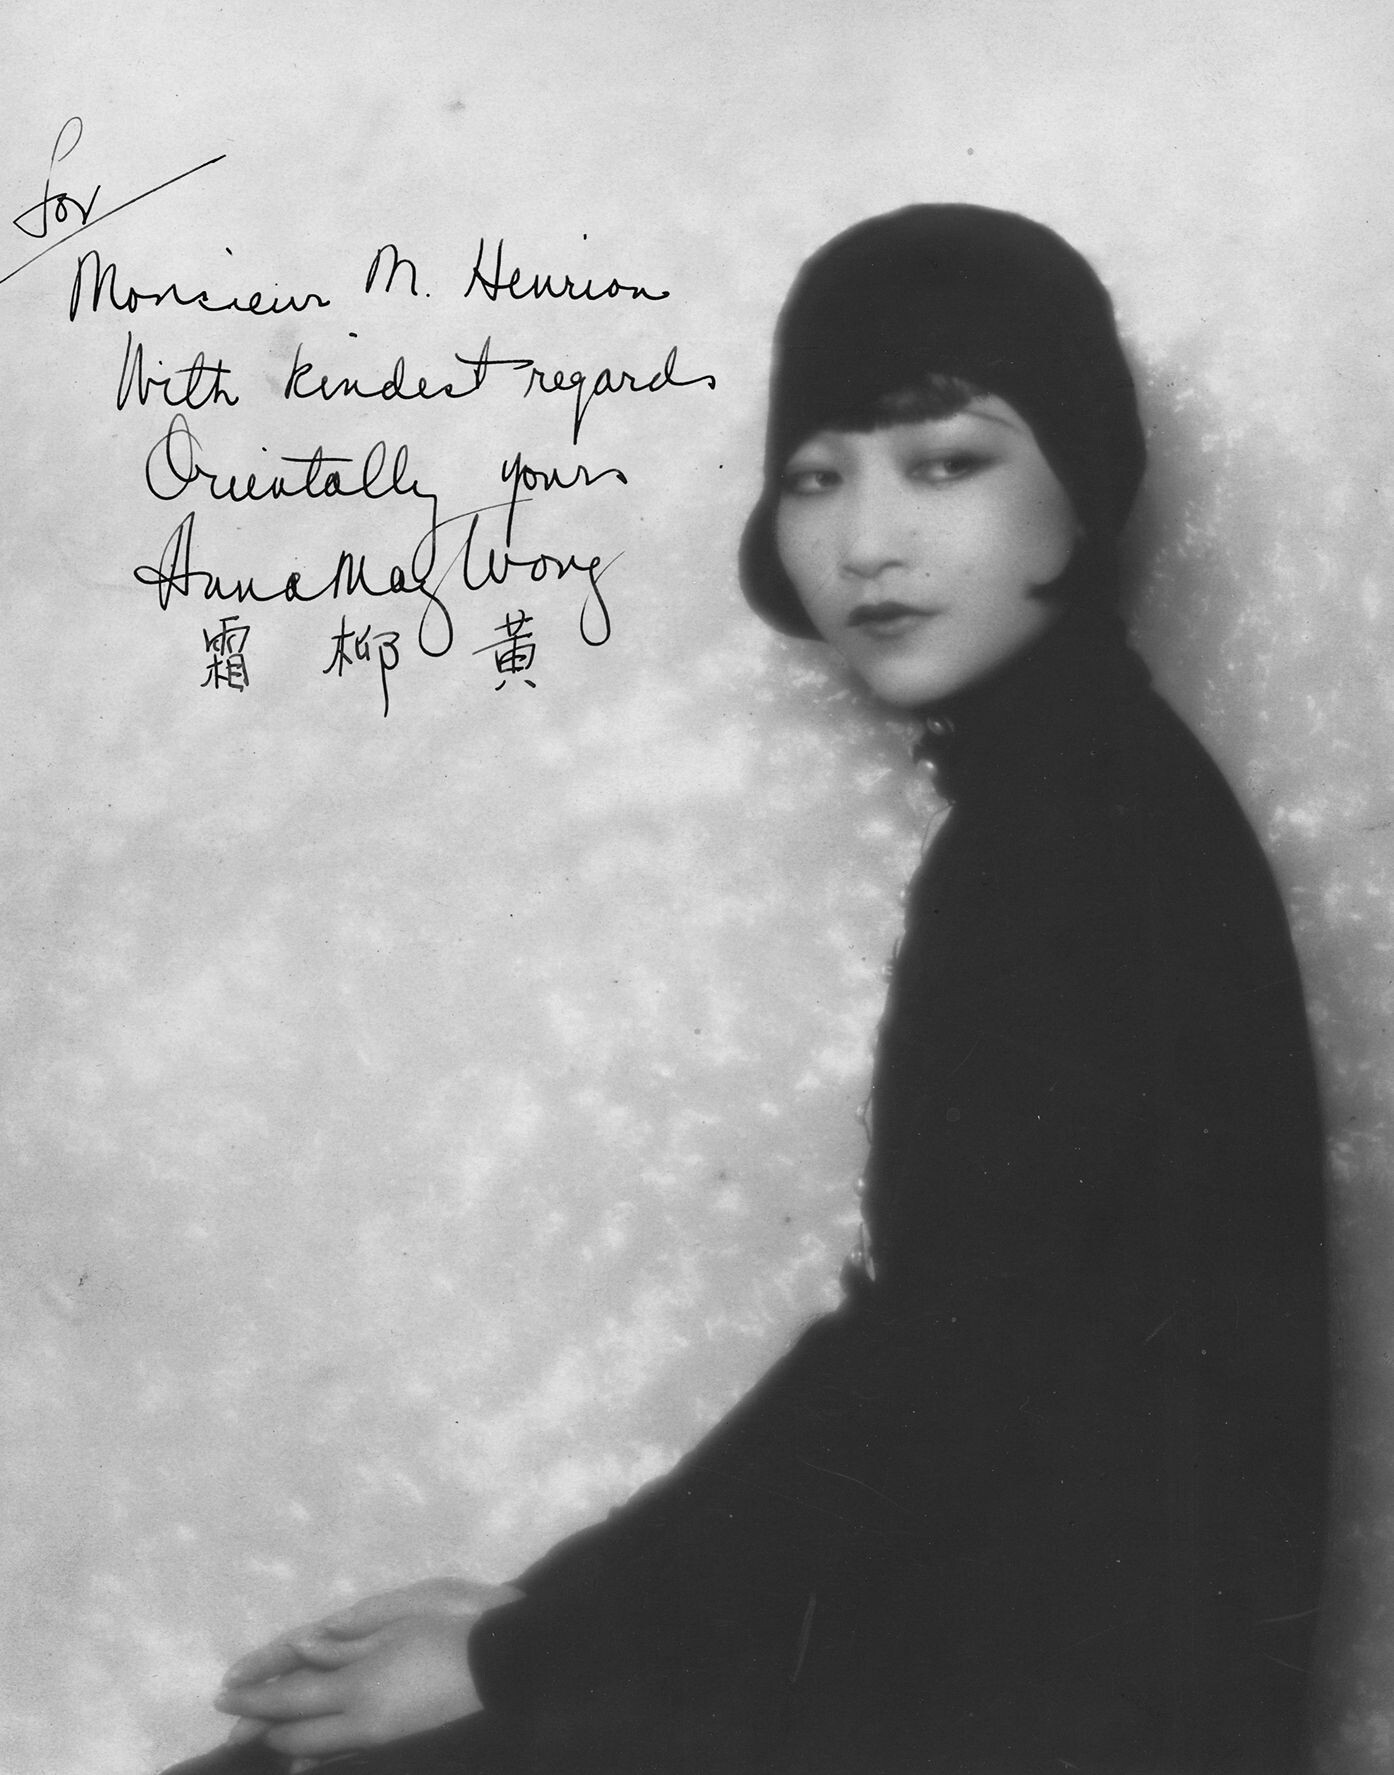 For
Monsieur M. Henrion
With kindest regards
Orientally yours
Anna May Wong
霜 柳 黃